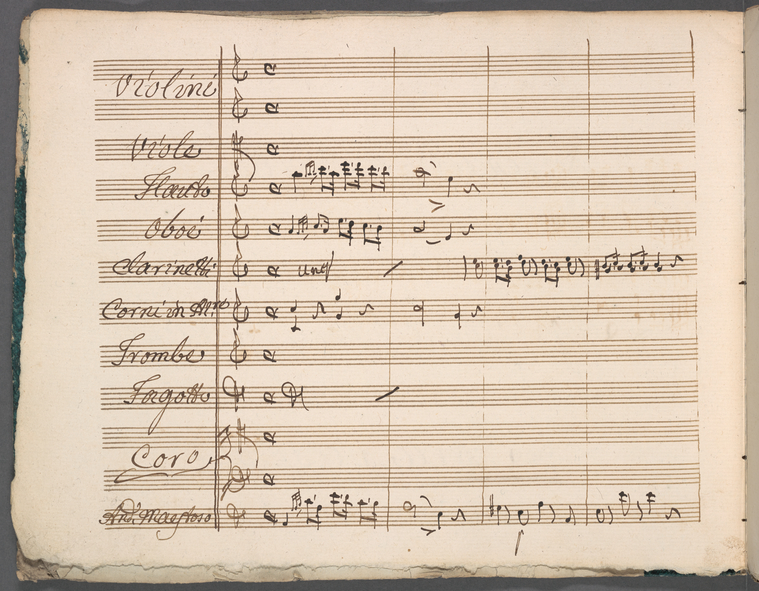 Violini
Viole
Flauto
Oboè
Clarinetti
unis
Corni in
Trombe
Fagotti
Coro
And. Maestoso